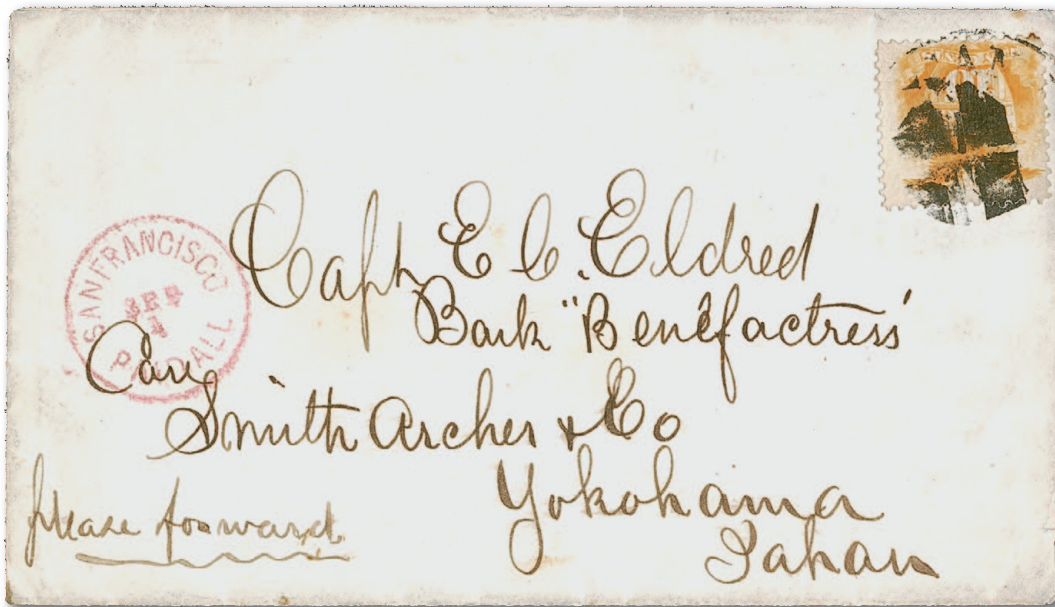 SAN FRANCISCO
PAID ALL
Capt E C. Eldred
Bark "Benefactress"
Care
Smith Archer & Co
Yokohama
Japan
please forward